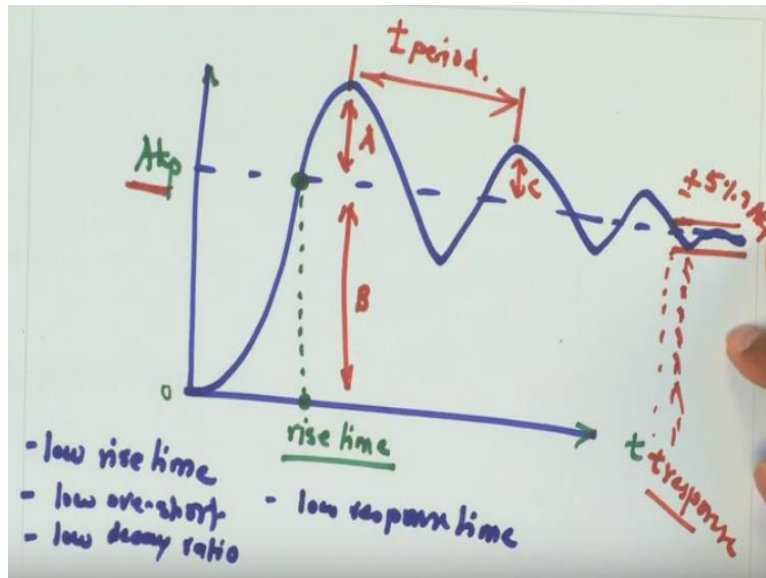 t period.
Akp
A
C
±5%
B
0
rise time
t
tresponse
- low rise time
- low ove-short
- low decay ratio
- low response time